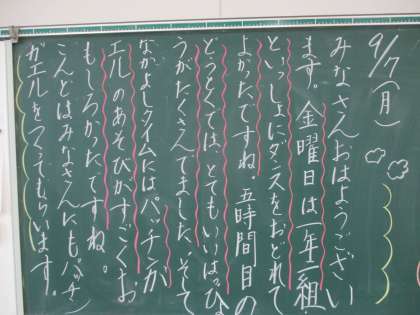 9/7(月)
みなさんおはようござい
ます。金曜日は一年一組
といっしょにダンスをおどれて
よかったですね。五時間目の
どうとくでは、とてもいいはっぴょ
うがたくさんでました。そして
なかよしタイムにはパッチンガ
エルのあそびがすごくお
もしろかったですね。
こんどはみなさんにもパッチン
ガエルをつくってもらいます。